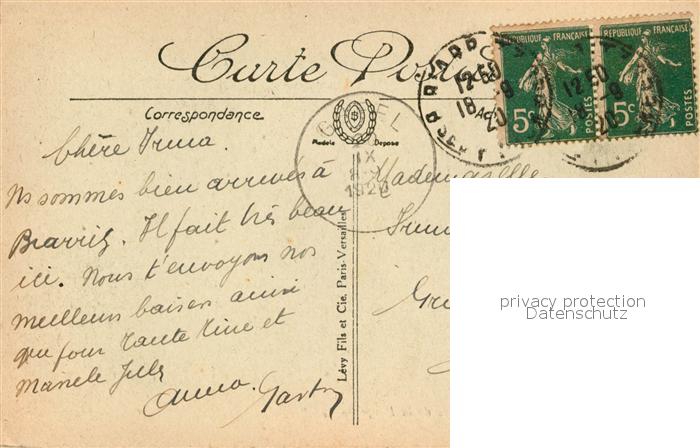 Carte Postale
RÉPUBLIQUE FRANÇAISE
RÉPUBLIQUE FRANÇAISE
5c POSTES
5c POSTES
12 50
12 50
18 - 8
20
20
Correspondance
Modèle Déposé
IX
1920
Chère Irma
Ns sommes bien arrivés à
Biarritz. Il fait très beau
ici. Nous t'envoyons nos
meilleurs baisers ainsi
que pour Tante Line et
Anna. Gaston
Lévy Fils et Cie, Paris-Versailles
Mademoiselle
Irma
privacy protection
Datenschutz